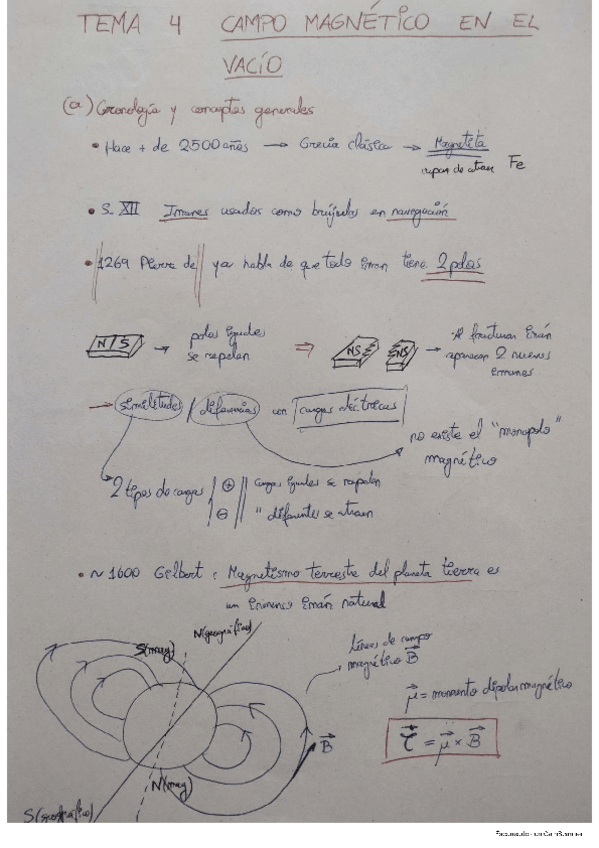 TEMA 4 CAMPO MAGNÉTICO EN EL
VACÍO
(a) Cronología y conceptos generales
• Hace + de 2500 años → Grecia clásica → Magnetita
capaz de atraer Fe
• S. XII Imanes usados como brújulas en navegación
• 1269 Pierre de ya habla de que todo imán tiene 2 polos
N/S → polos iguales
se repelen
⇒ NS NS → Al fracturar imán
aparecen 2 nuevos
imanes
→ similitudes / diferencias con cargas eléctricas
no existe el "monopolo"
magnético
2 tipos de cargas ⊕ cargas iguales se repelen
⊖ " diferentes se atraen
• ~ 1600 Gilbert: Magnetismo terrestre del planeta tierra es
un inmenso imán natural
N(geográfico)
S(mag)
líneas de campo
magnético B⃗
μ⃗ = momento dipolar magnético
τ⃗ = μ⃗ × B⃗
B⃗
N(mag)
S(geográfico)